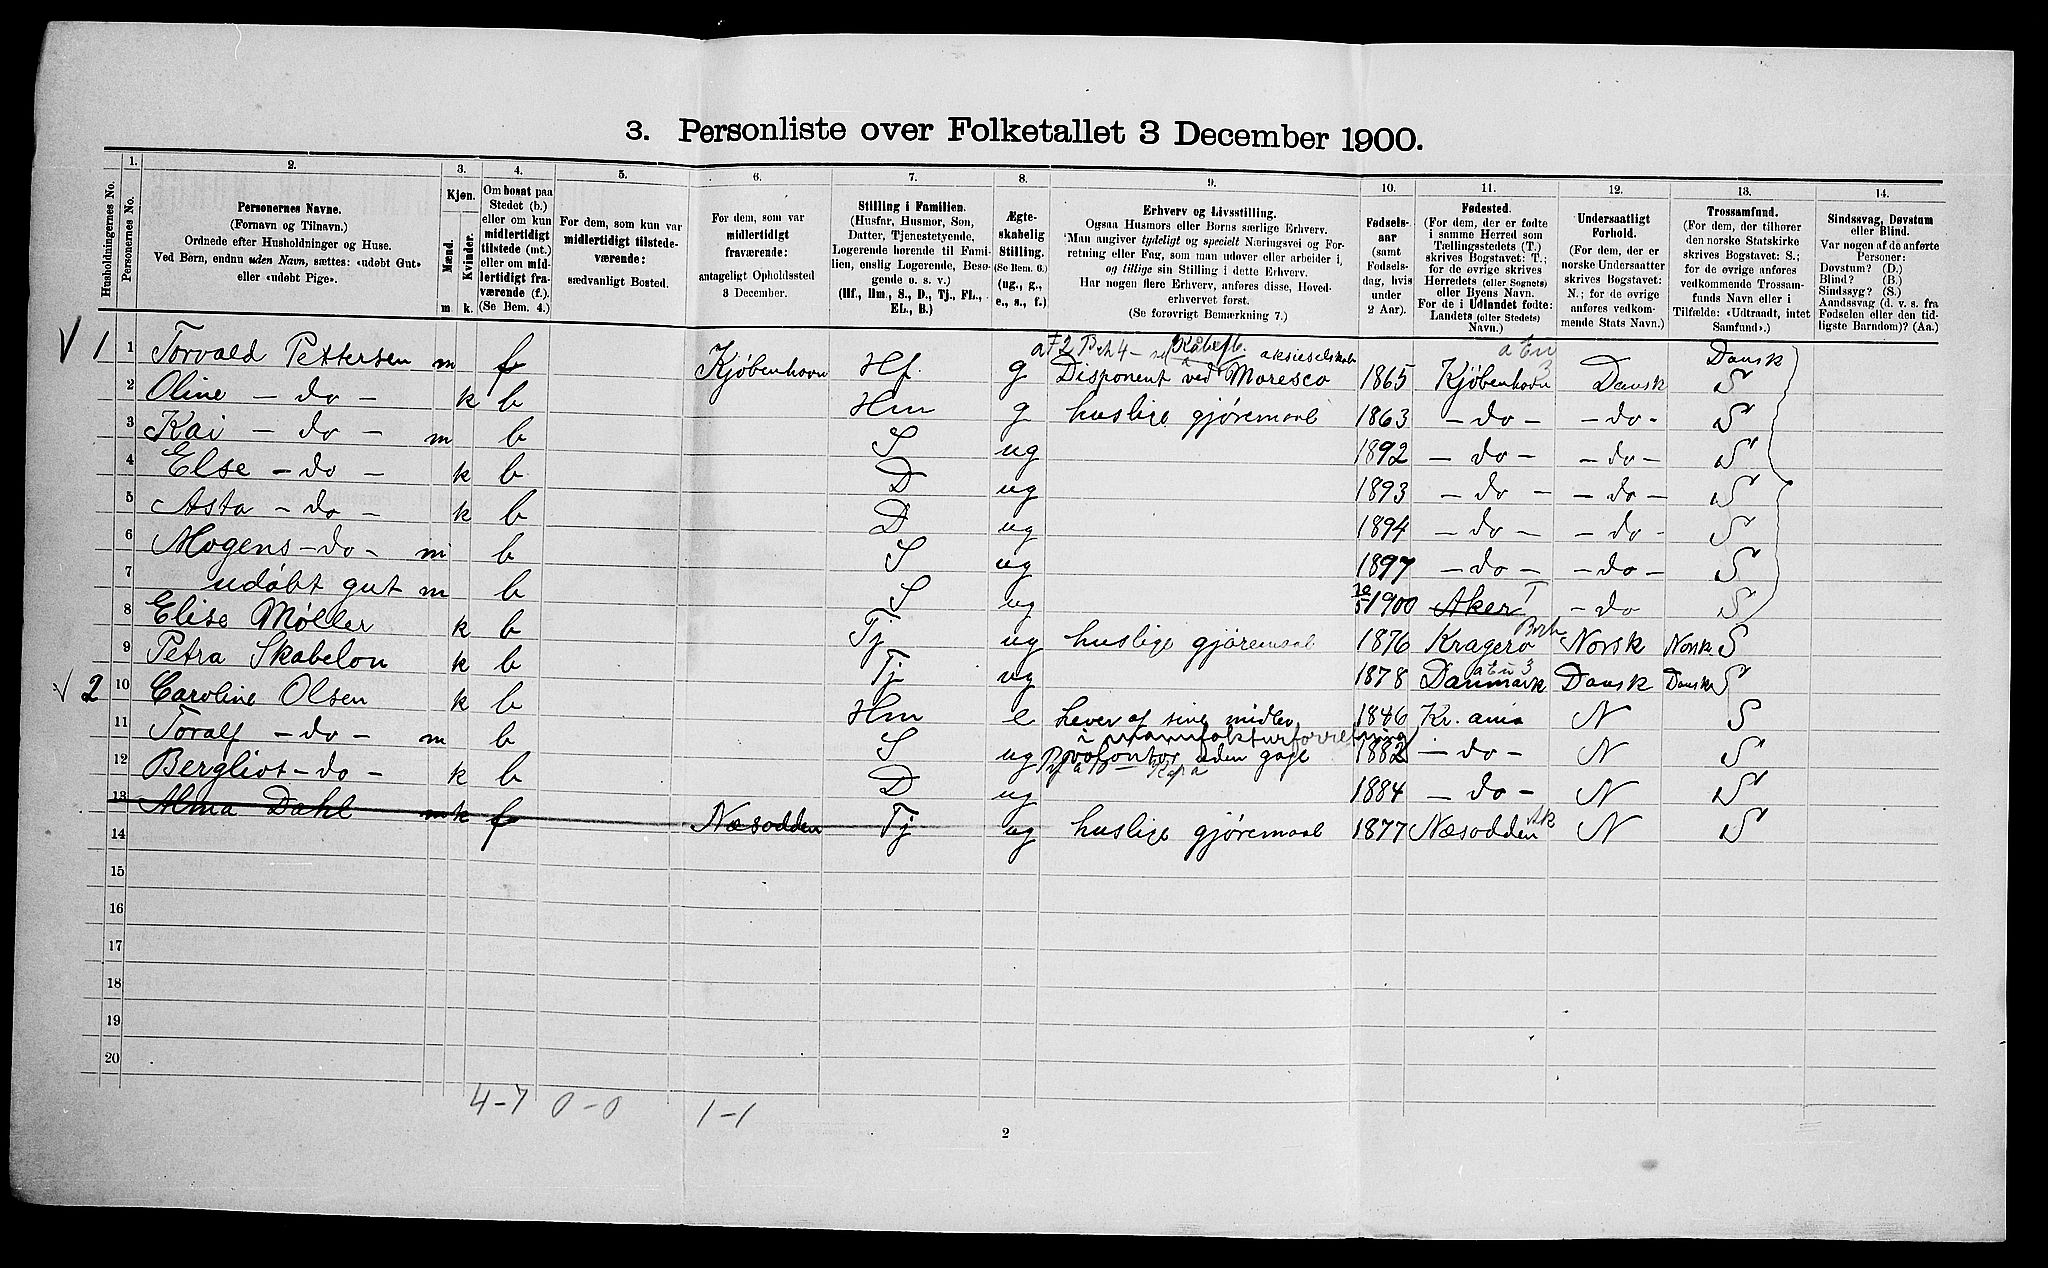 3. Personliste over Folketallet 3 December 1900.
Husholdningernes No.
1.
Personernes No.
2.
Personernes Navne.
(Fornavn og Tilnavn.)
Ordnede efter Husholdninger og Huse.
Ved Børn, endnu uden Navn, sættes: «udøbt Gut»
eller «udøbt Pige».
3.
Kjøn.
Mænd.
Kvinder.
m k.
4.
Om bosat paa
Stedet (b.)
eller om kun
midlertidigt
tilstede (mt.)
eller om mid-
lertidigt fra-
værende (f.).
(Se Bem. 4.)
5.
For dem, som kun var
midlertidigt tilstede-
værende:
sædvanligt Bosted.
6.
For dem, som var
midlertidigt
fraværende:
antageligt Opholdssted
3 December.
7.
Stilling i Familien.
(Husfar, Husmor, Søn,
Datter, Tjenestetyende,
Logerende hørende til Fami-
lien, enslig Logerende, Besø-
gende o. s. v.)
(Hf., Hm., S., D., Tj., FL.,
EL., B.)
8.
Ægte-
skabelig
Stilling.
(Se Bem. 6.)
(ug., g.,
e., s., f.)
9.
Erhverv og Livsstilling.
Ogsaa Husmors eller Børns særlige Erhverv.
Man angiver tydeligt og specielt Næringsvei og For-
retning eller Fag, som man udøver eller arbeider i,
og tillige sin Stilling i dette Erhverv.
Har nogen flere Erhverv, anføres disse, Hoved-
erhvervet først.
(Se forøvrigt Bemærkning 7.)
10.
Fødsels-
aar
(samt
Fødsels-
dag, hvis
under
2 Aar).
11.
Fødested.
(For dem, der er fødte
i samme Herred som
Tællingsstedets (T.)
skrives Bogstavet: T.;
for de øvrige skrives
Herredets (eller Sognets)
eller Byens Navn.
For de i Udlandet fødte:
Landets (eller Stedets)
Navn.)
12.
Undersaatligt
Forhold.
(For dem, der er
norske Undersaatter
skrives Bogstavet:
N.; for de øvrige
anføres vedkom-
mende Stats Navn.)
13.
Trossamfund.
(For dem, der tilhører
den norske Statskirke
skrives Bogstavet: S.;
for de øvrige anføres
vedkommende Trossam-
funds Navn eller i
Tilfælde: «Udtraadt, intet
Samfund».)
14.
Sindssvag, Døvstum
eller Blind.
Var nogen af de anførte
Personer:
Døvstum? (D.)
Blind? (B.)
Sindssyg? (S.)
Aandssvag (d. v. s. fra
Fødselen eller den tid-
ligste Barndom)? (Aa.)
Kåbefb. aksieselskab Dansk
1 1 Torvald Pettersen m f Kjøbenhavn Hf. g Disponent ved Moresco 1865 Kjøbenhavn Dansk S
2 Oline - do - k b Hm g huslige gjøremaal 1863 - do - - do - S
3 Kai - do - m b S ug 1892 - do - - do - S
4 Else - do - k b D ug 1893 - do - - do - S
5 Asta - do - k b D ug 1894 - do - - do - S
6 Mogens - do - m b S ug 1897 - do - - do - S
7 udøbt gut m b S ug 1900 Aker T - do S
8 Elise Møller k b Tj ug huslige gjøremaal 1876 Kragerø Norsk Norsk S
9 Petra Skabelon k b Tj ug 1878 Danmark Dansk Dansk S
2 10 Caroline Olsen k b Hm e Lever af sine midler 1846 Kr. ania N S
i manufakturforretning
11 Toralf - do - m b S ug Volontør uden gage 1882 - do - N S
12 Bergliot - do - k b D ug 1884 - do - N S
13 Alma Dahl m k f Næsodden Tj ug huslige gjøremaal 1877 Næsodden Ak N S
14
15
16
17
18
19
20
4-7 0-0 1-1
2